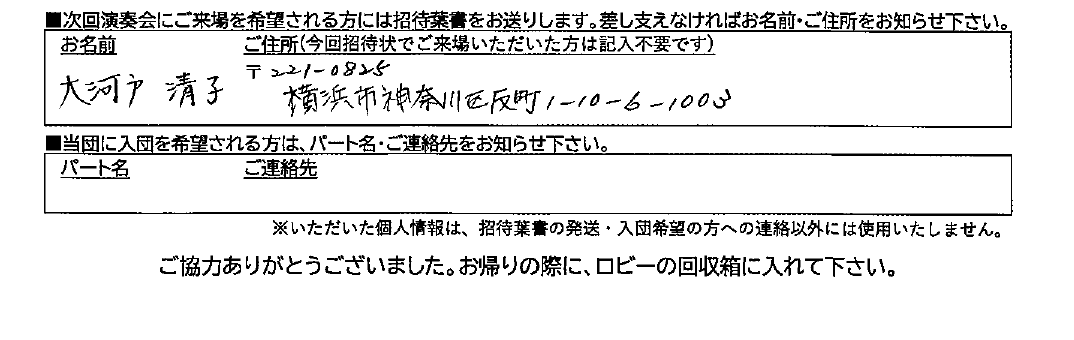 ■次回演奏会にご来場を希望される方には招待葉書をお送りします。差し支えなければお名前・ご住所をお知らせ下さい。
お名前 ご住所(今回招待状でご来場いただいた方は記入不要です)
〒221-0825
大河戸 清子 横浜市神奈川区反町1-10-6-1003
■当団に入団を希望される方は、パート名・ご連絡先をお知らせ下さい。
パート名 ご連絡先
※いただいた個人情報は、招待葉書の発送・入団希望の方への連絡以外には使用いたしません。
ご協力ありがとうございました。お帰りの際に、ロビーの回収箱に入れて下さい。